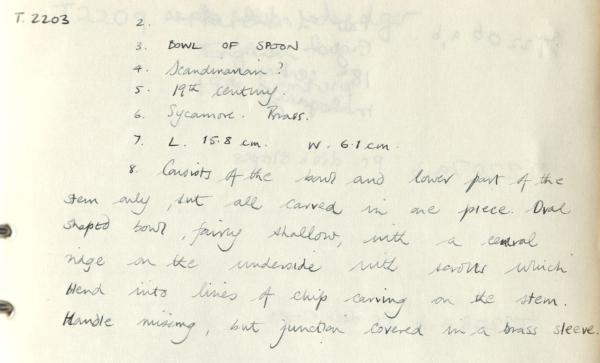 T. 2203 2.
3. BOWL OF SPOON
4. Scandinavian?
5. 19th century.
6. Sycamore. Brass.
7. L. 15.8 cm. W. 6.1 cm.
8. Consists of the bowl and lower part of the
stem only, but all carved in one piece. Oval
shaped bowl, fairly shallow, with a central
ridge on the underside with scrolls which
blend into lines of chip carving on the stem.
Handle missing, but junction covered in a brass sleeve.